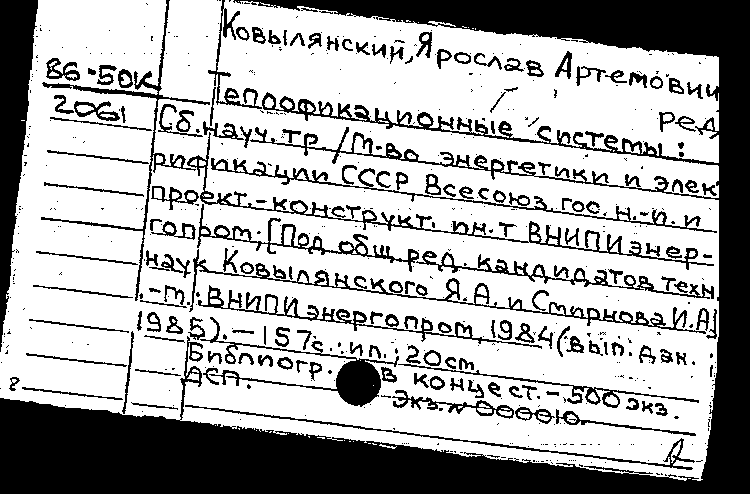 Ковылянский, Ярослав Артемович
ред
86-50К
2061
Теплофикационные системы:
Сб. науч. тр / М-во энергетики и элек
рификации СССР, Всесоюз. гос. н.-и. и
проект.-конструкт. ин-т ВНИПИэнер-
гопром; [Под общ. ред. кандидатов техн.
наук Ковылянского Я.А. и Смирнова И.А]
.-М.: ВНИПИэнергопром, 1984 (вып. дан. :
1985). - 157с.: ил.; 20см.
Библиогр. в конце ст. - 500 экз.
ДСП. Экз. N 000010.